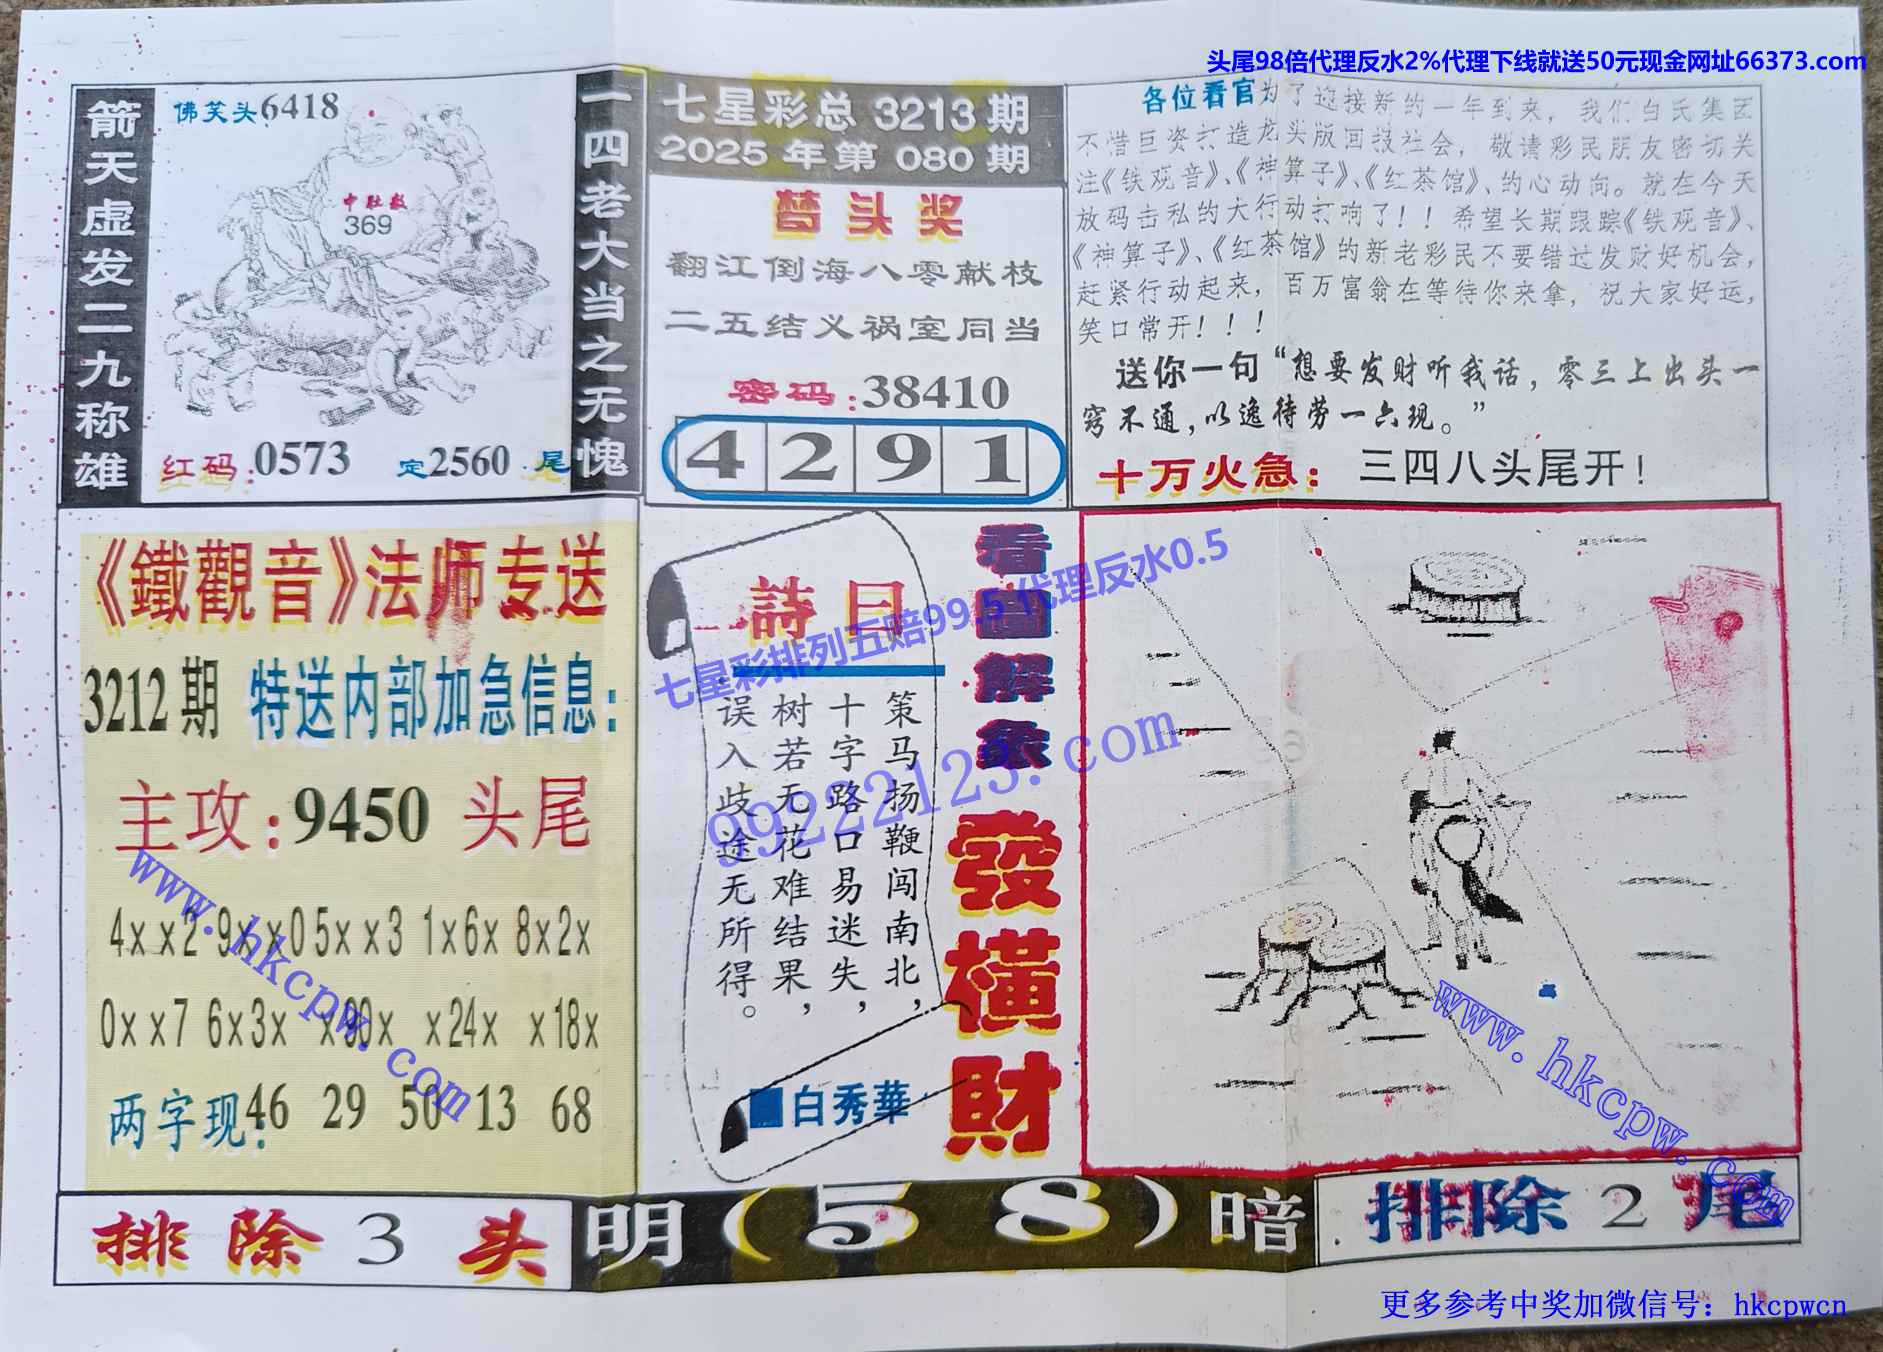 头尾98倍代理反水2%代理下线就送50元现金网址66373.com
箭天虚发二九称雄
佛笑头6418
中肚数
369
红码:0573 定2560尾
一四老大当之无愧
七星彩总 3213 期
2025 年第 080 期
梦头奖
翻江倒海八零献枝
二五结义祸室同当
密码:38410
4 2 9 1
各位看官为了迎接新的一年到来，我们白氏集团
不惜巨资打造龙头版回报社会，敬请彩民朋友密切关
注《铁观音》、《神算子》、《红茶馆》、的心动向。就在今天
放码击私的大行动打响了！！希望长期跟踪《铁观音》、
《神算子》、《红茶馆》的新老彩民不要错过发财好机会，
赶紧行动起来，百万富翁在等待你来拿，祝大家好运，
笑口常开！！！
送你一句“想要发财听我话，零三上出头一
窍不通，以逸待劳一六现。”
十万火急：三四八头尾开！
《鐵觀音》法师专送
3212期 特送内部加急信息：
主攻：9450 头尾
4xx2 9xx0 5xx3 1x6x 8x2x
0xx7 6x3x x90x x24x x18x
两字现：46 29 50 13 68
詩曰
策马扬鞭闯南北，
十字路口易迷失，
树若无花难结果，
误入歧途无所得。
白秀華
看圖解象
發橫財
七星彩排列五赔99.5代理反水0.5
99222123.com
www.hkcpw.com
www.hkcpw.com
排除 3 头
明（58）暗
排除 2 尾
更多参考中奖加微信号：hkcpwcn